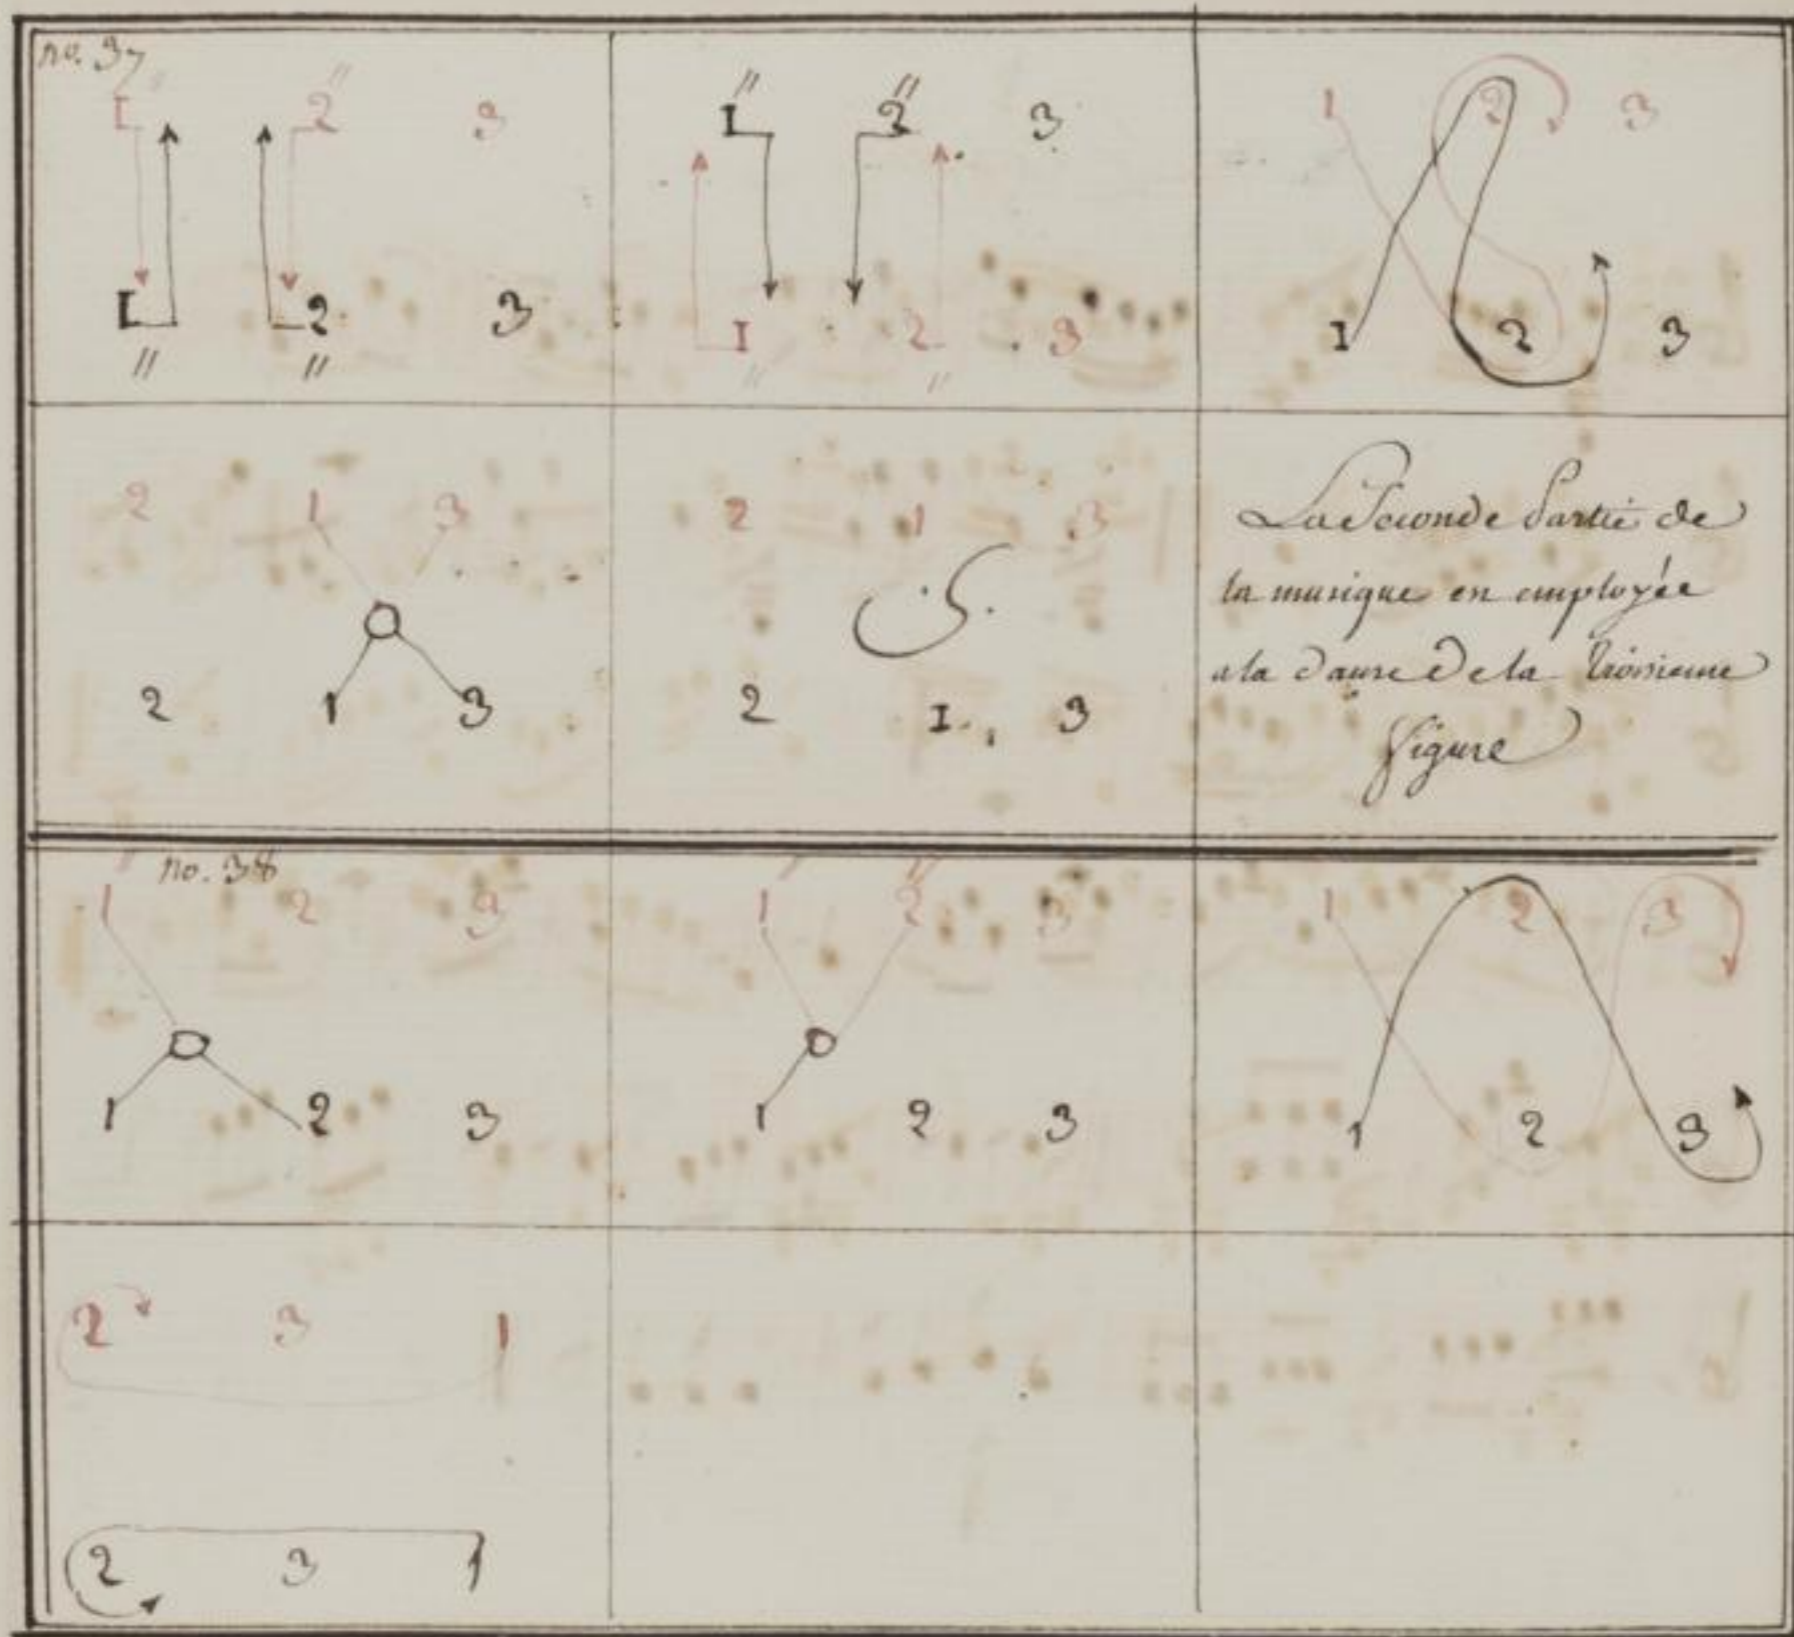 no. 37
1 2 3
1 2 3
1 2 3
1 2 3
1 2 3
1 2 3
2 1 3
2 1 3
2 1 3
2 1 3
La Seconde Partie de
la musique en employée
a la danse De la Troisieme
figure
no. 38
1 2 3
1 2 3
1 2 3
1 2 3
1 2 3
1 2 3
2 3 1
2 3 1